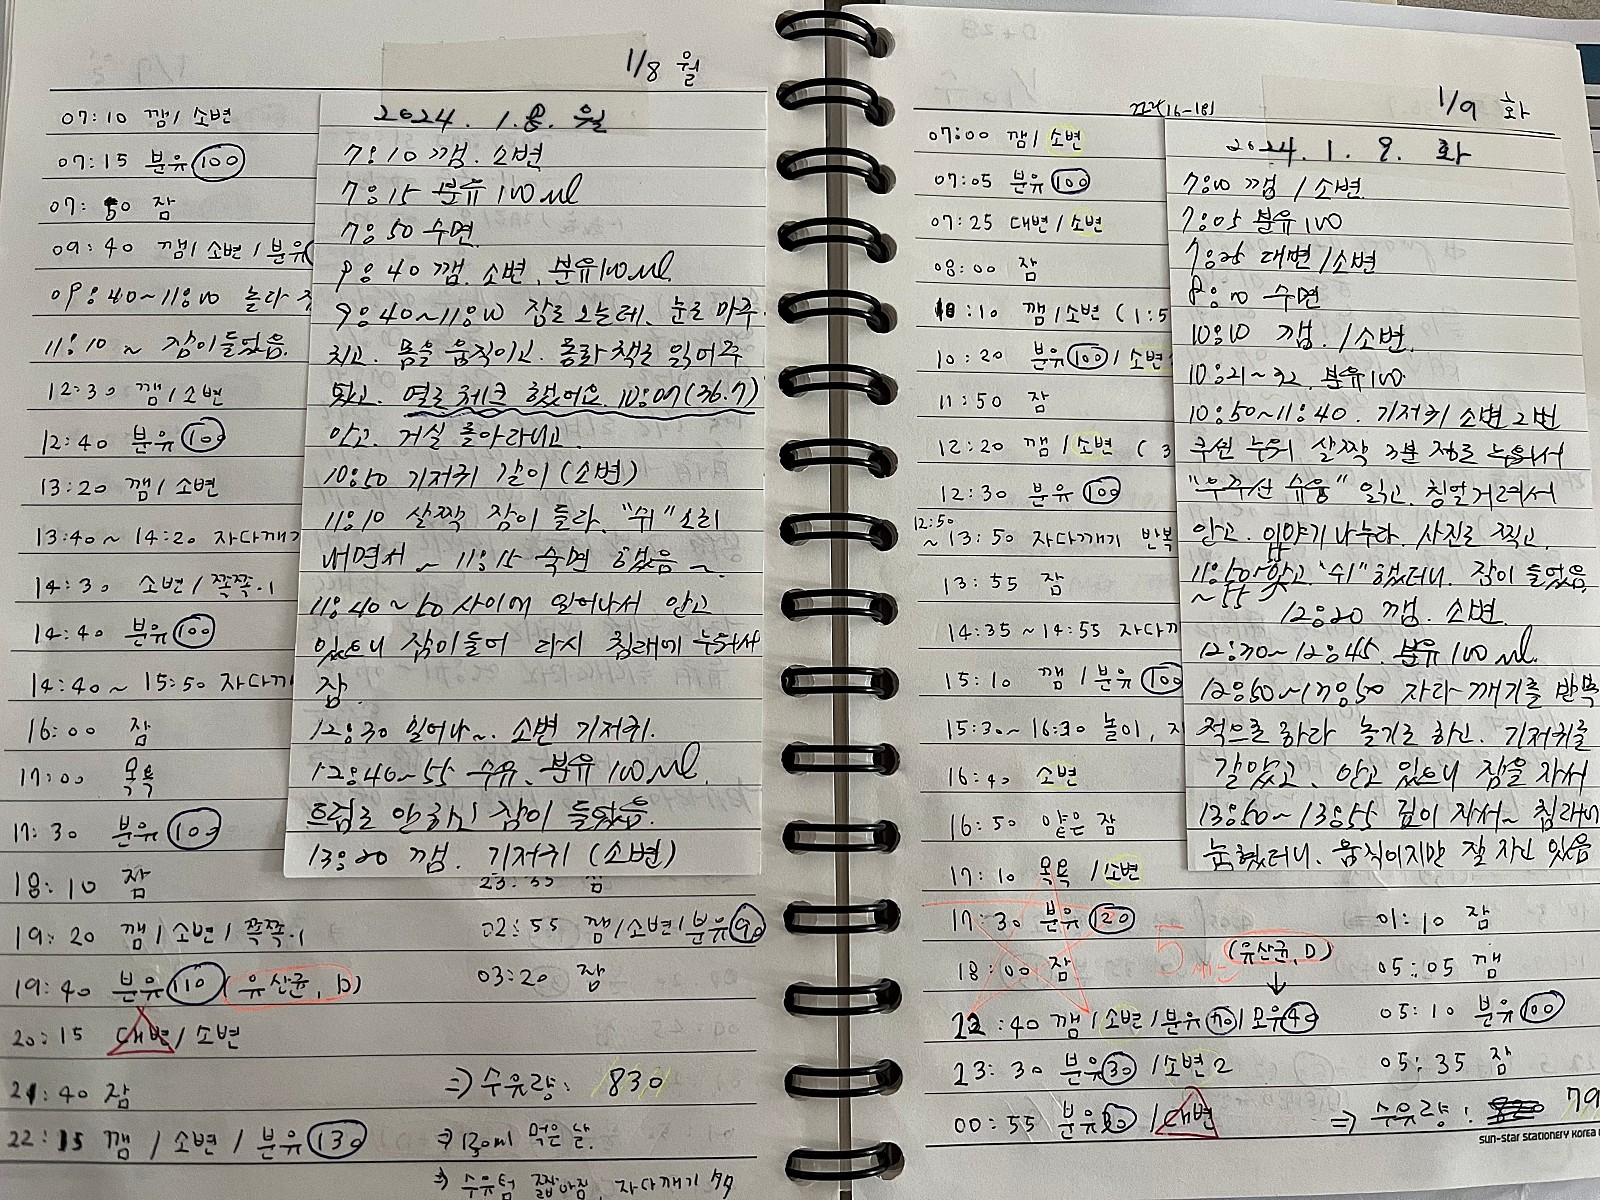 1/8 월
07:10 깸 / 소변
07:15 분유 100
07:50 잠
09:40 깸 / 소변 / 분유
09:40~11:10 놀다
11:10 ~ 잠이들었음.
12:30 깸 / 소변
12:40 분유 100
13:20 깸 / 소변
13:40~14:20 자다깨기
14:30 소변 / 쪽쪽.이
14:40 분유 100
14:40~15:50 자다깨기
16:00 잠
17:00 목욕
17:30 분유 100
18:10 잠
19:20 깸 / 소변 / 쪽쪽.이
19:40 분유 110 (유산균, D)
20:15 대변 / 소변
21:40 잠
22:15 깸 / 소변 / 분유 130
2024. 1. 8. 월
7:10 깸. 소변
7:15 분유 100ml
7:50 수면.
9:40 깸. 소변. 분유100ml.
9:40~11:00 잠을 오는데. 눈을 마주
치고. 몸을 움직이고. 동화책을 읽어주
었고. 열을 체크 했어요. 10:07(36.7)
안고. 거실 돌아다니고.
10:50 기저귀 갈이 (소변)
11:10 살짝 잠이 들다. "쉬" 소리
내면서 ~ 11:15 숙면 했음 ~.
11:40~50 사이에 일어나서 안고
있으니 잠이들어 다시 침대에 누워서
잠.
12:30 일어나~. 소변 기저귀.
12:40~55 수유. 분유 100ml.
트림을 안하고 잠이 들었음.
13:20 깸. 기저귀 (소변)
23:35 잠
02:55 깸/소변/분유 90
03:20 잠
⇒ 수유량: 830
⇒ 130ml 먹은 날.
⇒ 수유텀 짧아짐, 자다깨기
1/9 화
07:00 깸 / 소변
07:05 분유 100
07:25 대변 / 소변
08:00 잠
10:10 깸 / 소변 (1:5
10:20 분유 100 / 소변
11:50 잠
12:20 깸 / 소변 ( 3
12:30 분유 100
12:50
~ 13:50 자다깨기 반복
13:55 잠
14:35 ~ 14:55 자다깨
15:10 깸 / 분유 100
15:30~16:30 놀이,
16:40 소변
16:50 얕은 잠
17:10 목욕 / 소변
17:30 분유 120
18:00 잠
22:40 깸 / 소변 / 분유 70 / 모유 40
23:30 분유 30 / 소변 2
00:55 분유 / 대변
2024. 1. 9. 화
7:00 깸 / 소변.
7:05 분유 100
7:25 대변 / 소변
8:00 수면
10:10 깸. / 소변.
10:21~32. 분유100.
10:50~11:40. 기저귀 소변 2번
쿠션 누워 살짝 3분 정도 누워서
"우주선 슈웅" 읽고. 칭얼거려서
안고. 이야기 나누다. 사진을 찍고.
11:50 안고. "쉬" 했더니. 잠이 들었음.
~55
12:20 깸. 소변.
12:30~12:45. 분유 100ml.
12:50~13:50 자다 깨기를 반복
적으로 하다 놀기도 하고. 기저귀를
갈았고. 안고 있으니 잠을 자서
13:50~13:55 깊이 자서~ 침대에
눕혔더니. 움직이지만 잘 자고 있음
5
(유산균, D)
01:10 잠
05:05 깸
05:10 분유 100
05:35 잠
⇒ 수유량: 79
sun-star Stationery Korea